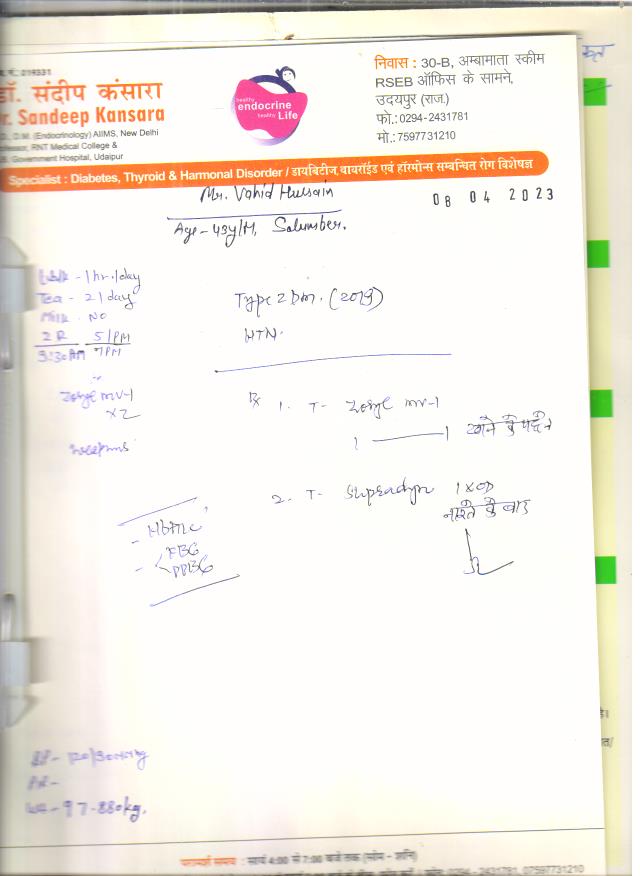 डॉ. संदीप कंसारा
Dr. Sandeep Kansara
D.M. (Endocrinology) AIIMS, New Delhi
RNT Medical College &
Government Hospital, Udaipur
healthy
endocrine
healthy Life
निवास : 30-B, अम्बामाता स्कीम
RSEB ऑफिस के सामने,
उदयपुर (राज.)
फो.:0294-2431781
मो.:7597731210
Specialist : Diabetes, Thyroid & Harmonal Disorder / डायबिटीज, थायरॉईड एवं हॉरमोन्स सम्बन्धित रोग विशेषज्ञ
Mr. Vahid Hussain
08 04 2023
Age - 43y/M, Salumber.
Walk - 1 hr./day
Tea - 2/day
Milk - NO
2R 5/PM
9:30AM 7PM
Type 2 Dm. (2019)
HTN.
Zoryl mv-1
x2
Rx 1. T- Zoryl mv-1
1 — 1 खाने के पहले
2. T- Supradyn 1 x OD
नाश्ते के बाद
- HbA1c
- FBG
PPBG
BP- 120/80mmHg
PR-
Wt- 97.880kg.
परामर्श समय : सायं 4:00 से 7:00 बजे तक (सोम - शनि)
0294 - 2431781, 07597731210